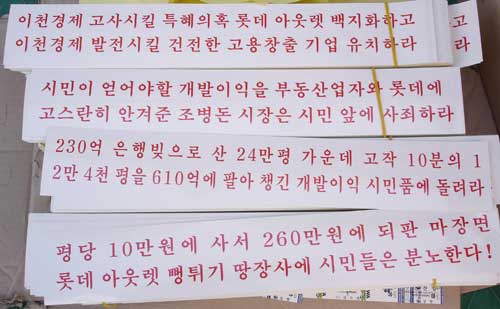 이천경제 고사시킬 특혜의혹 롯데 아웃렛 백지화하고
이천경제 발전시킬 건전한 고용창출 기업 유치하라
시민이 얻어야할 개발이익을 부동산업자와 롯데에
고스란히 안겨준 조병돈 시장은 시민 앞에 사죄하라
230억 은행빚으로 산 24만평 가운데 고작 10분의 1
2만 4천 평을 610억에 팔아 챙긴 개발이익 시민품에 돌려라
평당 10만원에 사서 260만원에 되판 마장면
롯데 아웃렛 뻥튀기 땅장사에 시민들은 분노한다!